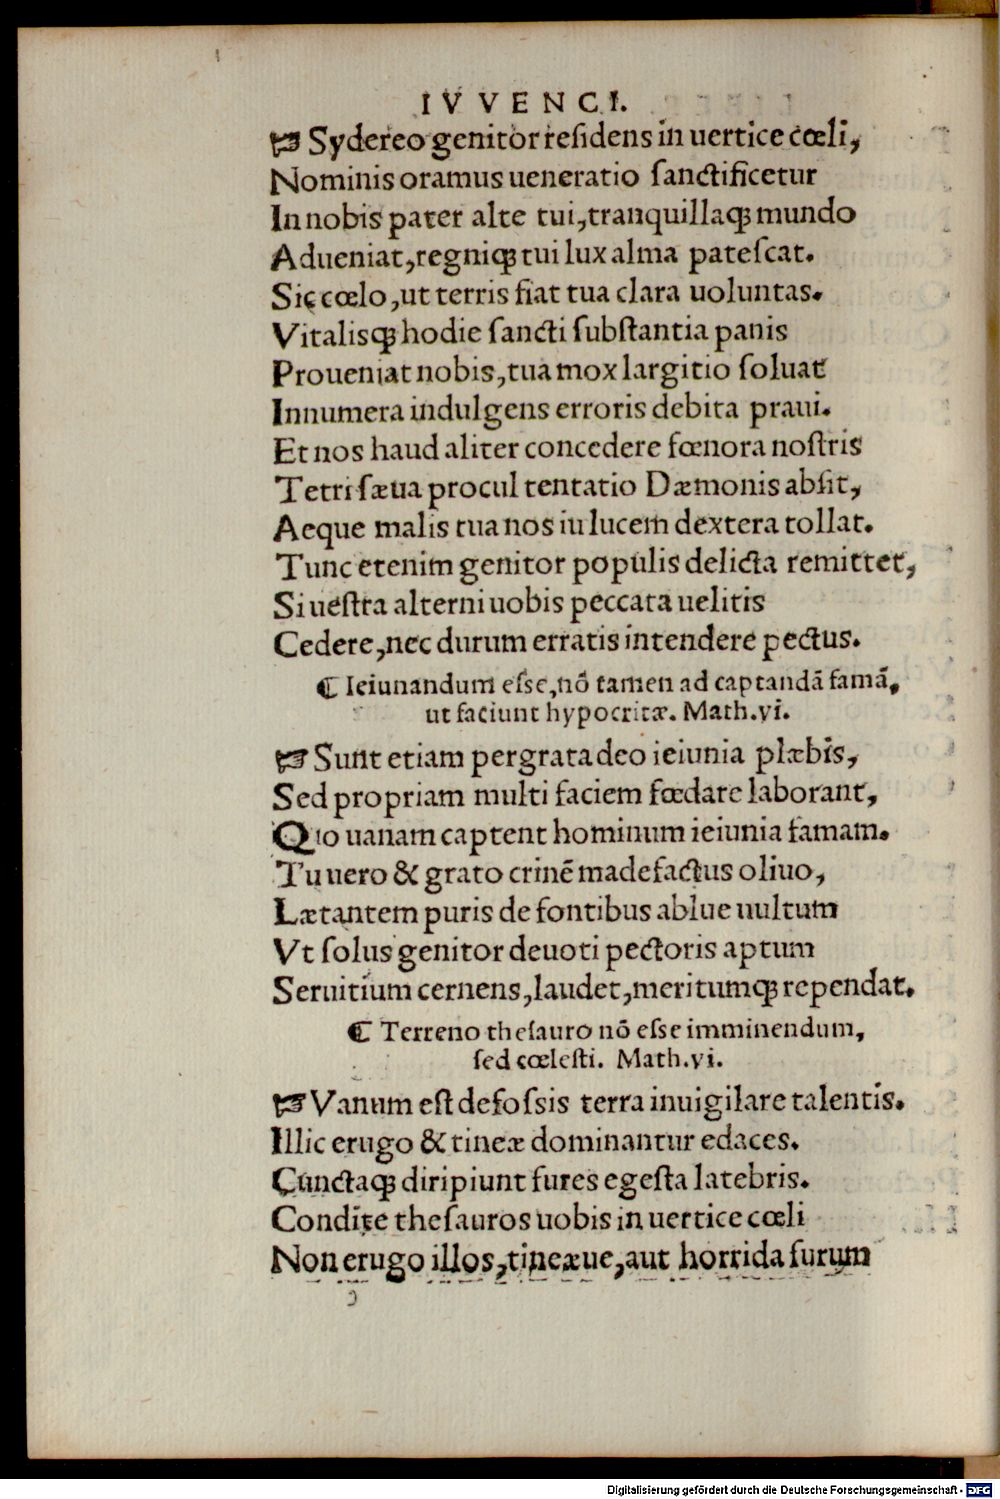 IVVENCI.
☞ Sydereo genitor residens in uertice cœli,
Nominis oramus ueneratio sanctificetur
In nobis pater alte tui, tranquillaqꝫ mundo
Adueniat, regniqꝫ tui lux alma patescat.
Sic cœlo, ut terris fiat tua clara uoluntas.
Vitalisqꝫ hodie sancti substantia panis
Proueniat nobis, tua mox largitio soluat
Innumera indulgens erroris debita praui.
Et nos haud aliter concedere fœnora nostris
Tetri sæua procul tentatio Dæmonis absit,
Aeque malis tua nos iu lucem dextera tollat.
Tunc etenim genitor populis delicta remittet,
Si uestra alterni uobis peccata uelitis
Cedere, nec durum erratis intendere pectus.
¶ Ieiunandum esse, nõ tamen ad captandã famã,
ut faciunt hypocritæ. Math.vi.
☞ Sunt etiam pergrata deo ieiunia plæbis,
Sed propriam multi faciem fœdare laborant,
Quo uanam captent hominum ieiunia famam.
Tu uero & grato crinẽ madefactus oliuo,
Lætantem puris de fontibus ablue uultum
Vt solus genitor deuoti pectoris aptum
Seruitium cernens, laudet, meritumqꝫ rependat.
¶ Terreno thesauro nõ esse imminendum,
sed cœlesti. Math.vi.
☞ Vanum est defossis terra inuigilare talentis.
Illic erugo & tineæ dominantur edaces.
Cunctaqꝫ diripiunt fures egesta latebris.
Condite thesauros uobis in uertice cœli
Non erugo illos, tineæue, aut horrida furum
Digitalisierung gefördert durch die Deutsche Forschungsgemeinschaft - DFG